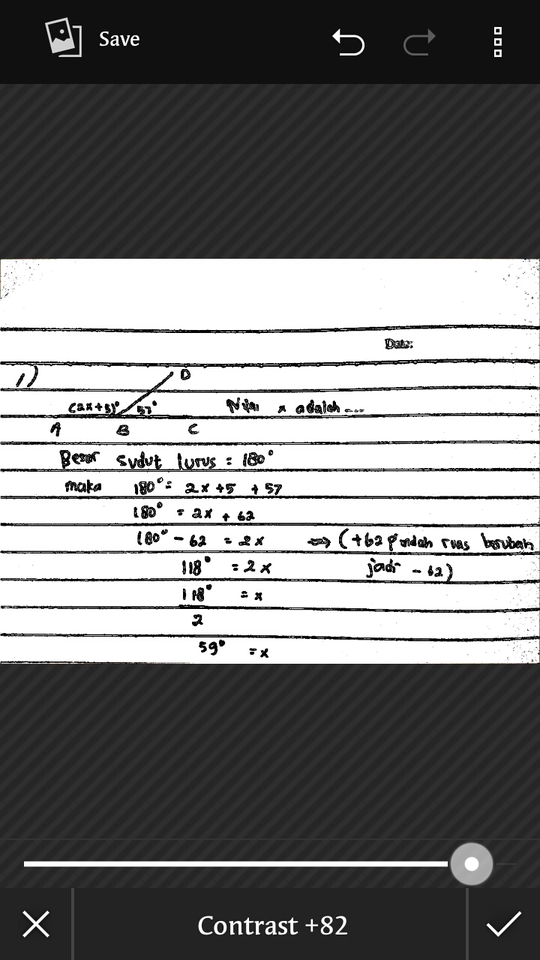 Save
Date:
1)
D
(2x+5)° 57° Nilai x adalah ...
A B C
Besar sudut lurus = 180°
maka 180° = 2x +5 +57
180° = 2x + 62
180° - 62 = 2x ⇔ (+62 pindah ruas berubah
118° = 2x jadi - 62)
118° = x
2
59° = x
Contrast +82